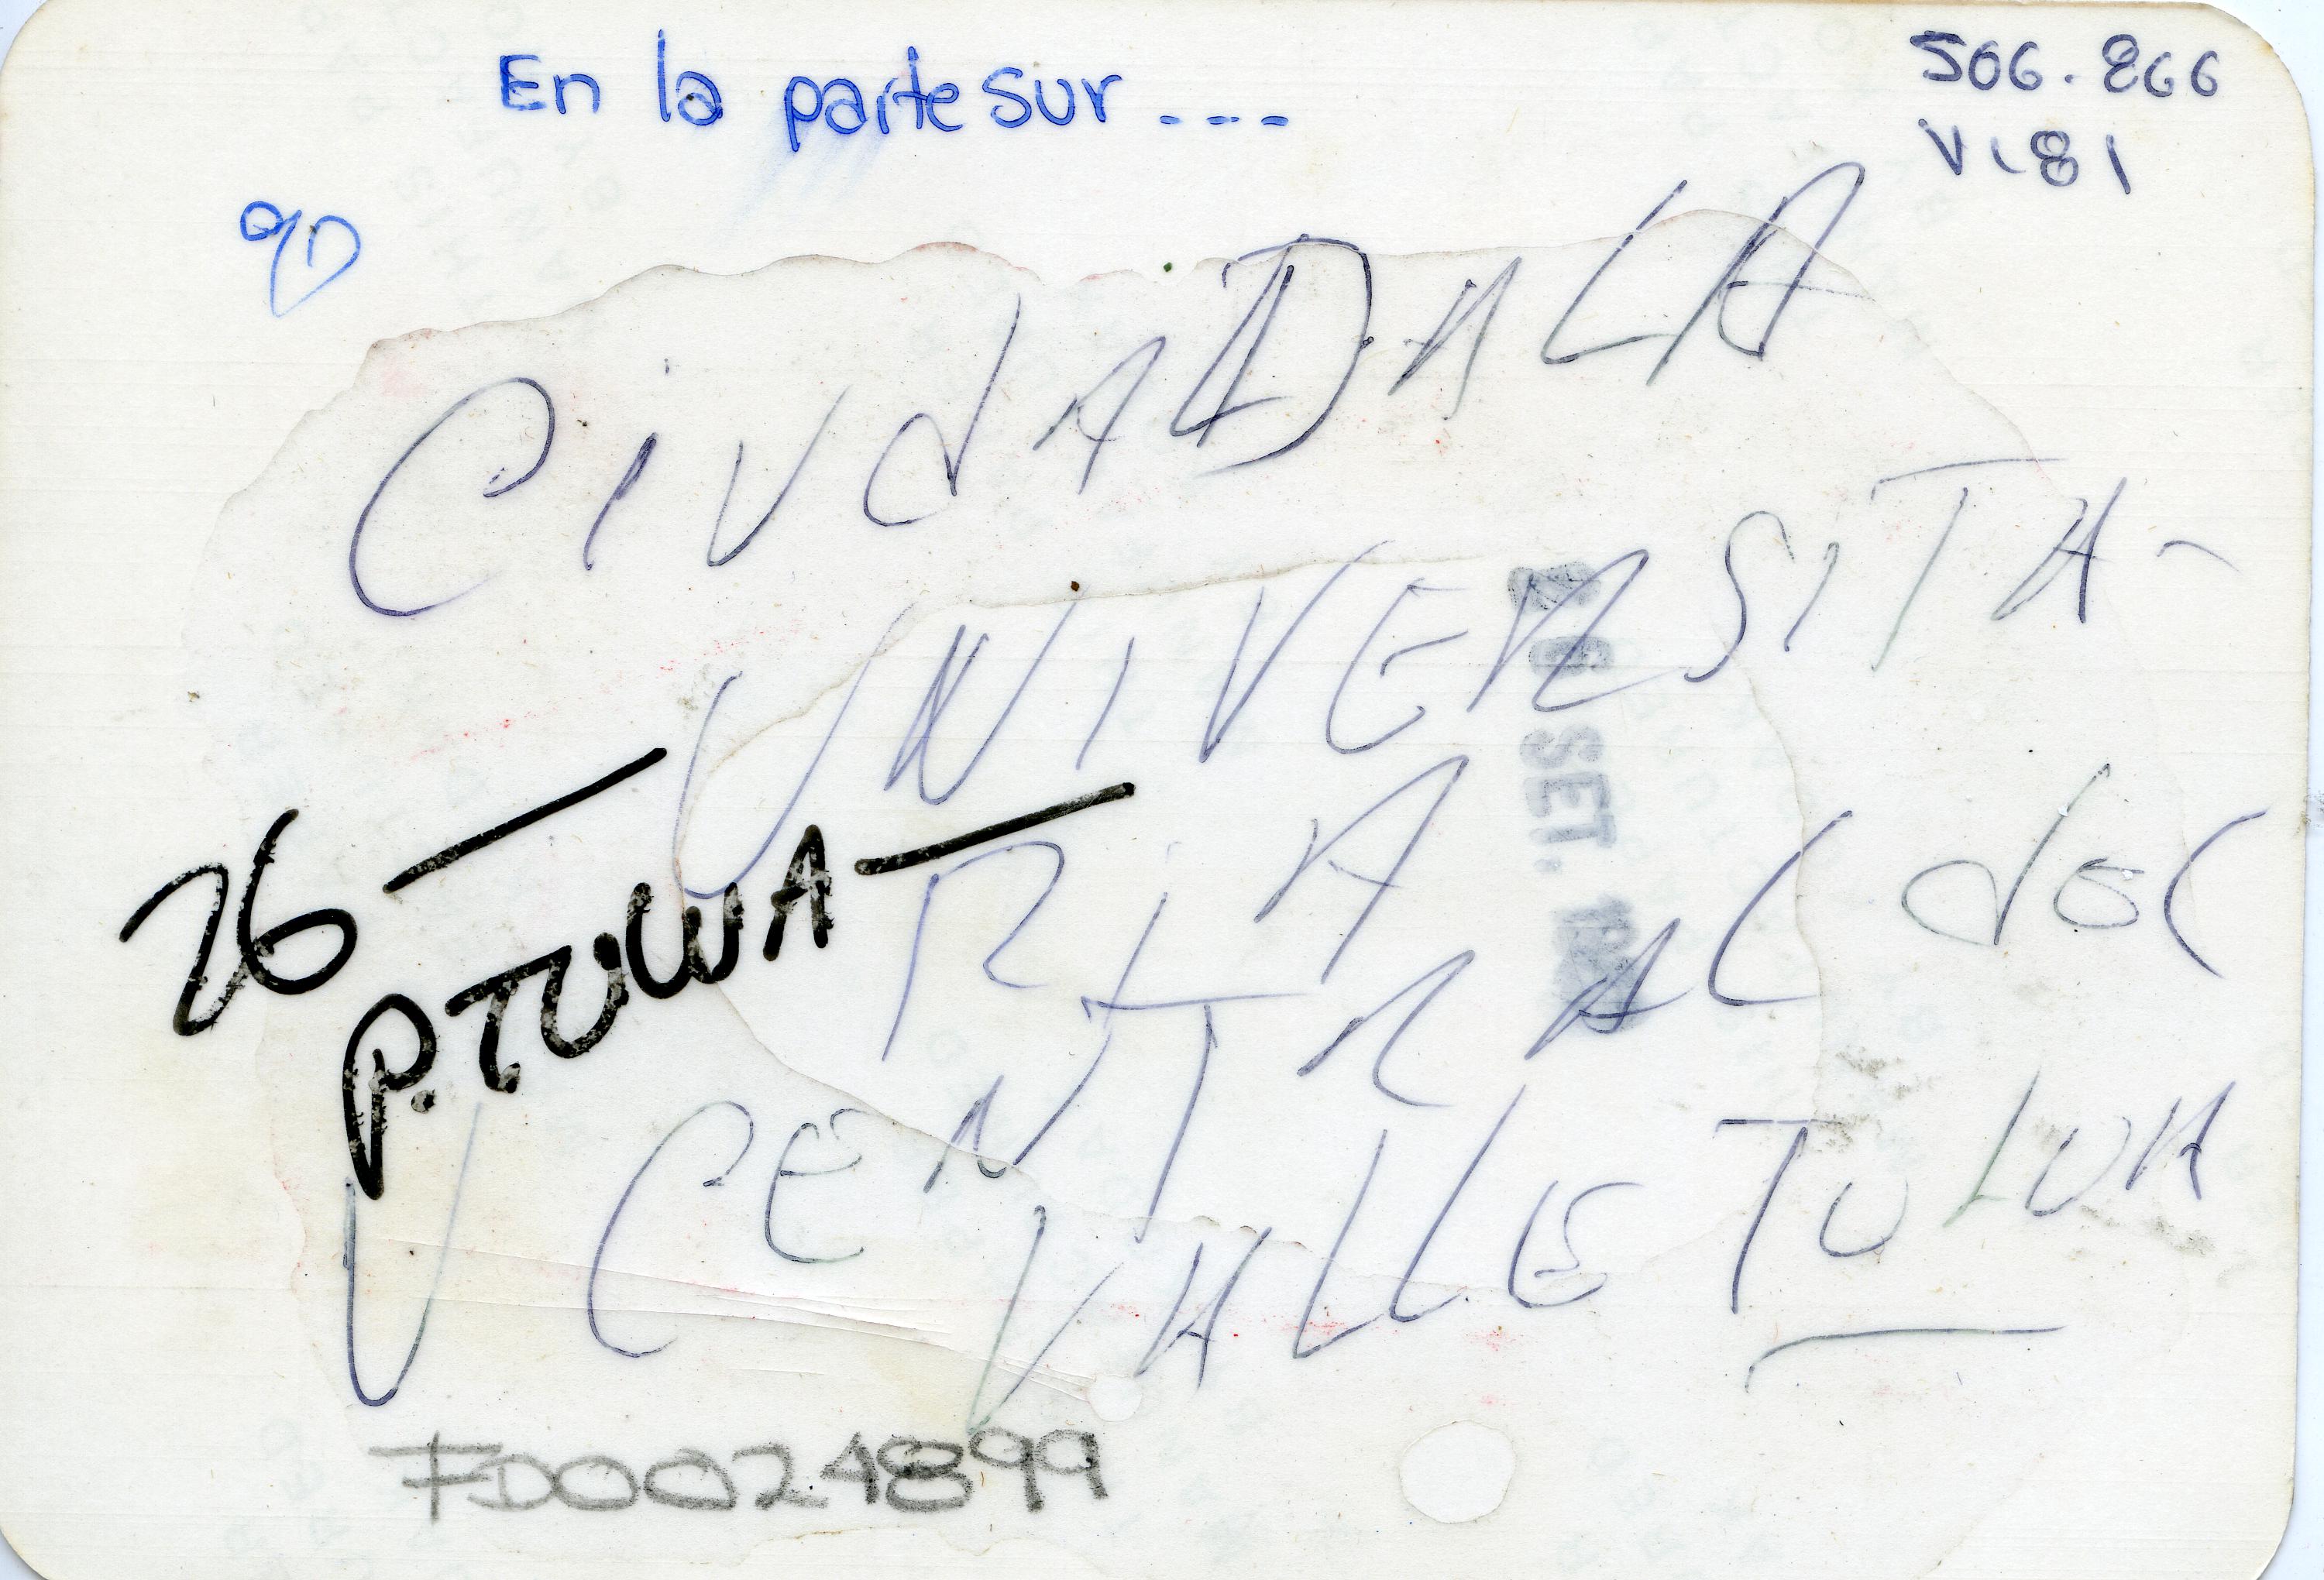 En la parte sur ---
506.866
V181
CiUdADALA
UNIVERSITA-
RiA
U CENTRAL del
VALLE TULUA
26 —
P.TULUA —
SET.
FD0024899